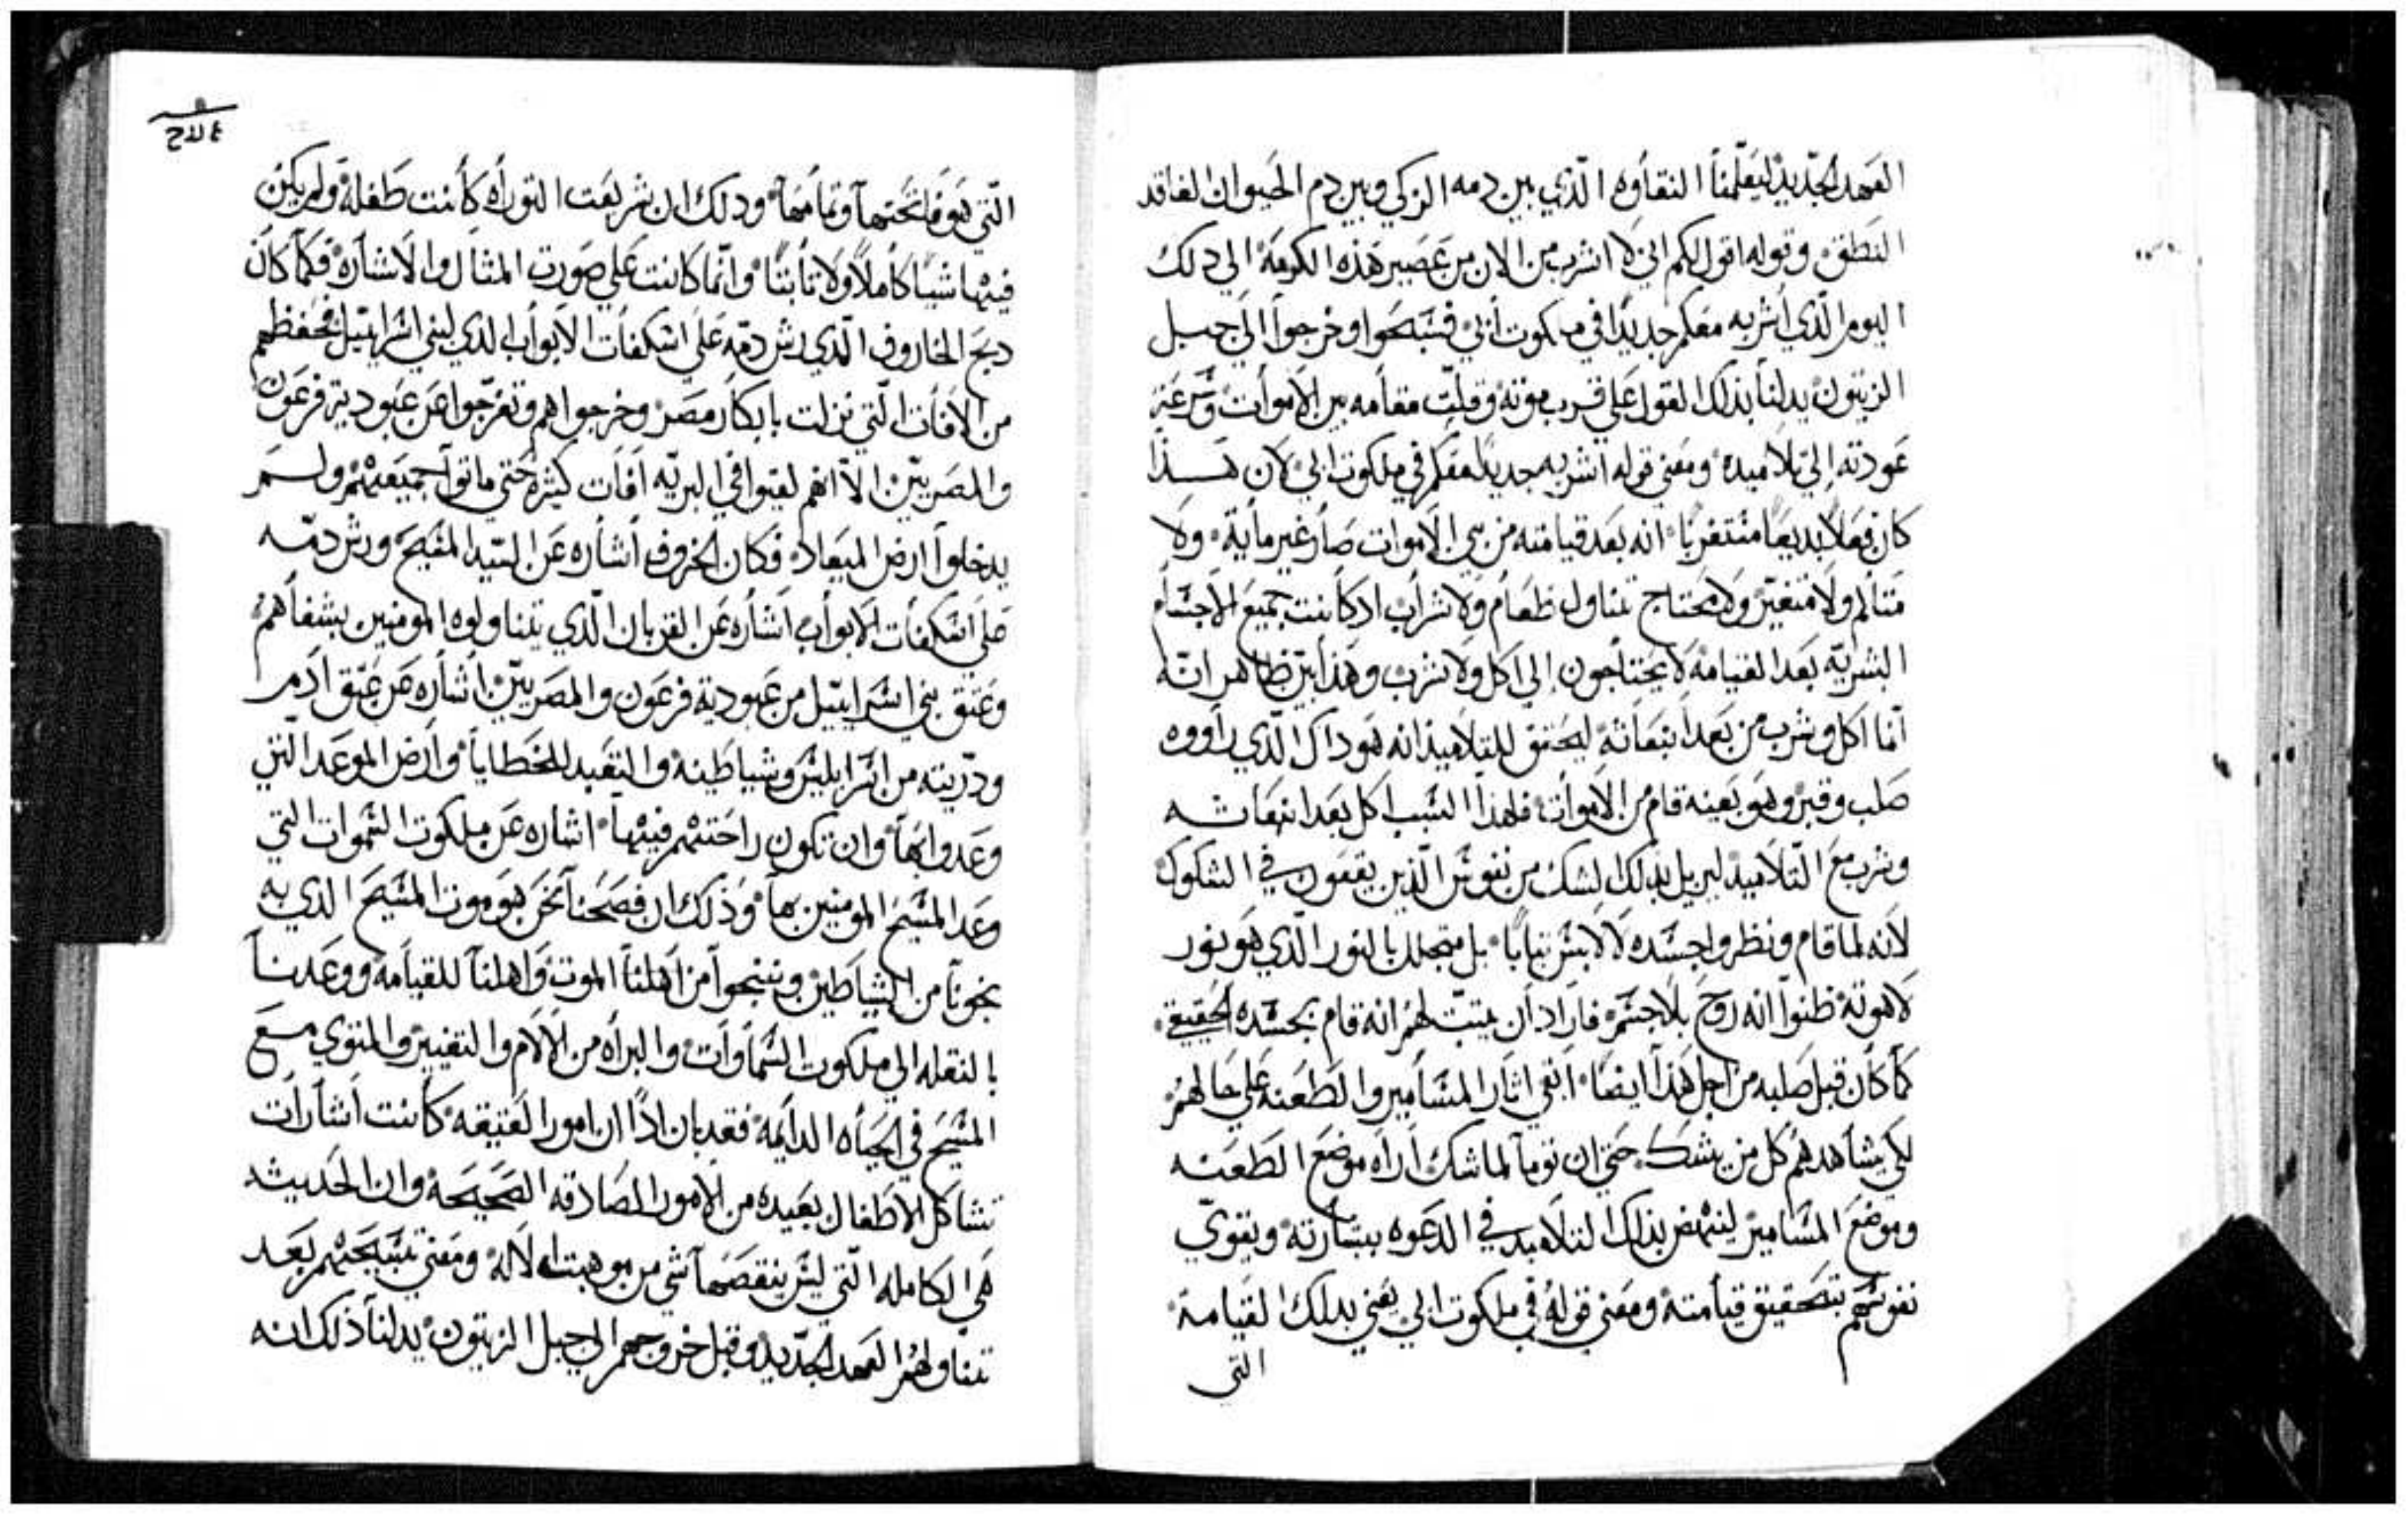 العهد الجديد ليعلمنا التفاوه الذي بين دمه الزكي وبين دم الحيوان الفاقد
النطق وقوله اقول لكم اني لا اشرب من الان من عصير هذه الكرمه الي دلك
اليوم الذي اشربه معكم جديدا في ملكوت ابي فسبحوا وخرجوا الي جبل
الزيتون يدلنا بذلك القول علي قرب موته وقلت مقامه بين الاموات وسرعة
عودته الي تلاميده ومعني قوله اشربه جديدا معكم في ملكوت ابي لان هذا
كان فعلا بديعا انه بعد قيامته من بين الاموات صار غير ماية ولا
متالم ولا متغير ولا محتاج تناول طعام ولا شراب اد كانت جميع الاجسام
البشرية بعد القيامة لا يحتاجون الي اكل ولا شرب وهذا بين ظاهر انه
انما اكل وشرب من بعد انبعاثه ليحقق للتلاميذ انه هو داك الذي راووه
صلب وقبر وهو بعينه قام من الاموات فلهذا السبب اكل بعد انبعاثه
وشرب مع التلاميد ليزيل بدلك الشك من نفوس الذين يقعون في الشكوك
لانه لما قام ونظروا جسده لا لابس ثيابا بل متجلل بالنور الذي هو نور
لاهوته ظنوا انه روح بلا جسم فاراد ان يثبت لهم انه قام بجسده الحقيقي
كما كان قبل صلبه من اجل هذا ايضا ابقي اثار المسامير والطعنه علي حالهم
لكي يشاهدهم كل من يشك حتي ان توما لما شك اراه موضع الطعنه
وموضع المسامير لينهض بذلك التلاميد في الدعوه ببشارته ويقوي
نفوسهم بتحقيق قيامته ومعني قوله في ملكوت ابي يعني بدلك القيامة
التي
التي هو فاتحتها وتمامها ودلك ان شريعت التوراه كانت طفلة ولم يكن
فيها شيا كاملا ولا ثابتا وانما كانت علي صورت المثال والاشارة فكما كان
دبح الخاروف الذي رش دمه علي اسكفات الابواب لدي بني اسراييل فحفظهم
من الافات التي نزلت بابكار مصر وخرجوا هم وتفرجوا عن عبودية فرعون
والمصريين الا انهم لقيوا في البريه افات كثيرة حتي ماتوا جميعهم ولم
يدخلوا ارض الميعاد فكان الخروف اشاره عن السيد المسيح ورش دمه
علي اسكفات الابواب اشاره عن القربان الذي يتناولوه المومنين بشفاههم
وعتق بني اسراييل من عبودية فرعون والمصريين اشاره عن عتق ادم
ودريته من اسر ابليس وشياطينه والتقيد للخطايا وارض الموعد التي
وعدوا بها وان تكون راحتهم فيها اشاره عن ملكوت السموات التي
وعد المسيح المومنين بها وذلك ان فصحنا نحن هو موت المسيح الدي به
نجونا من الشياطين وننجوا من اهلنا الموت واهلنا للقيامة ووعدنا
بالنقله الي ملكوت السماوات والبراه من الالام والتغيير والمتوي مع
المسيح في الحياه الدايمه فقد بان ادا ان امور العتيقه كانت اشارات
تشاكل الاطفال بعيده من الامور الصادقه الصحيحة وان الحديثه
هي الكامله التي ليس ينقصها شي من موهبت الاله ومعني تسبيحهم بعد
تناولهم العهد الجديد وقبل خروجهم الي جبل الزيتون يدلنا ذلك انه